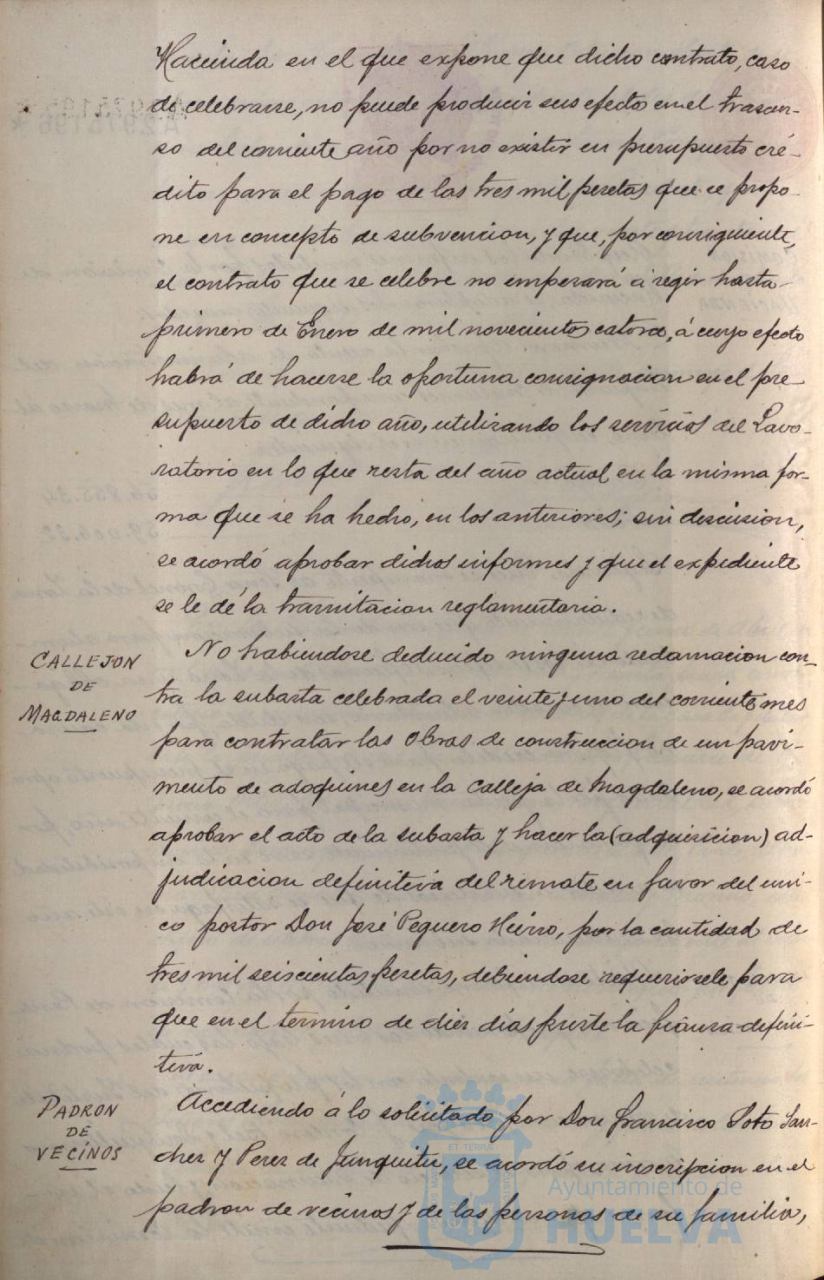 Hacienda en el que expone que dicho contrato, caso
de celebrarse, no puede producir sus efecto en el trascur-
so del corriente año por no existir en presupuesto cré-
dito para el pago de las tres mil pesetas que se propo-
ne en concepto de subvencion, y que, por consiguiente,
el contrato que se celebre no empesará á regir hasta
primero de Enero de mil novecientos catorce, á cuyo efecto
habrá de hacerse la oportuna consignacion en el pre-
supuesto de dicho año, utilizando los servicios del Lavo-
ratorio en lo que resta del año actual en la misma for-
ma que se ha hecho, en los anteriores; sin discusion,
se acordó aprobar dichos informes y que el expediente
se le dé la tramitacion reglamentaria.
CALLEJON
DE
MAGDALENO
No habiendose deducido ninguna reclamacion con-
tra la subasta celebrada el veinte y uno del corriente mes
para contratar las obras de construccion de un pavi-
mento de adoquines en la Calleja de Magdaleno, se acordó
aprobar el acto de la subasta y hacer la (adquisicion) ad-
judicacion definitiva del remate en favor del uni-
co postor Don José Peguero Hierro, por la cantidad de
tres mil seiscientas pesetas, debiendose requerirsele para
que en el termino de diez días preste la fianza defini-
tiva.
PADRON
DE
VECINOS
Accediendo á lo solicitado por Don Francisco Soto San-
chez y Perez de Junquitu, se acordó su inscripcion en el
padron de vecinos y de las personas de su familia,
ET TERRA
Ayuntamiento de
HUELVA